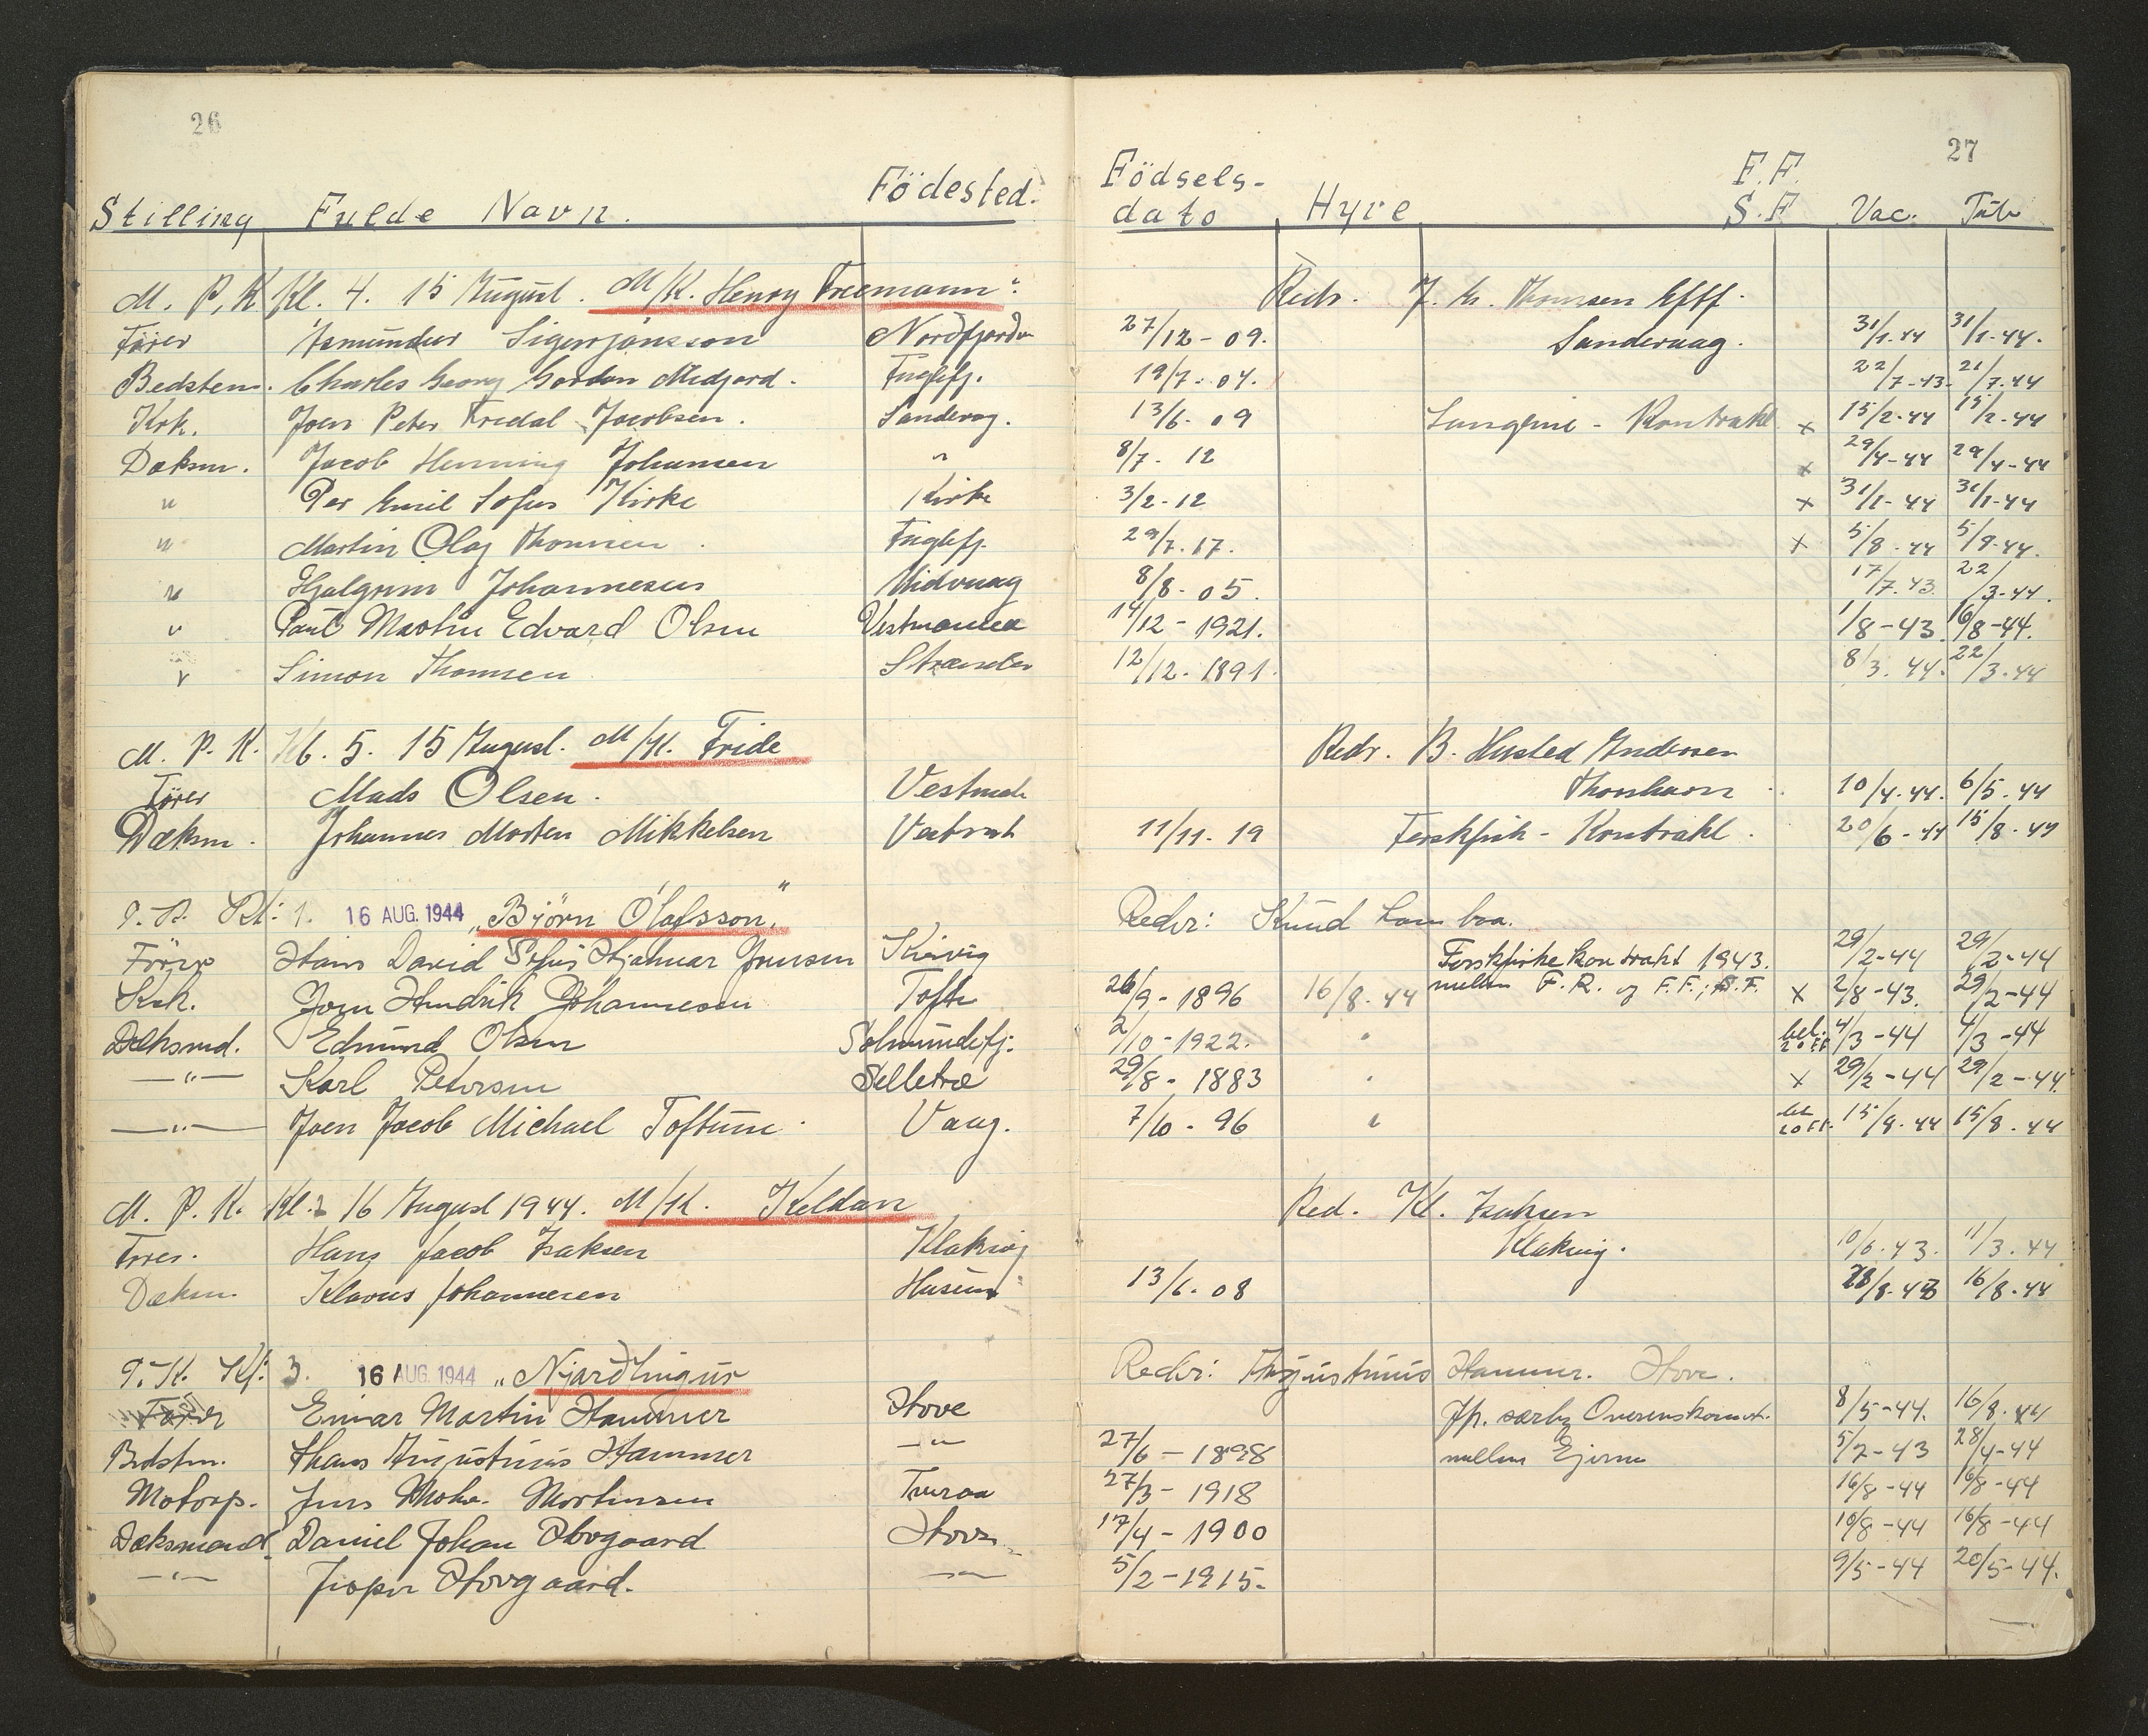 26
27
Stilling Fulde Navn. Födested. Födsels-dato Hyre F.F. S.F. Vac. Tub
M. P. K. Kl. 4. 15 August. M/K. Henry Freemann. Redr. J. Fr. Thomsen Eftf.
Förer Asmundur Sigurjónsson Nordfjordur 27/12-09. Sandevaag. 31/1.44 31/1-44.
Bedstem. Charles Georg Gordon Midjord. Fuglefj. 19/7.04. 22/7-43. 21/7.44
Kok. Joen Peter Fredal Jacobsen. Sandevog. 13/6.09 Kontrakt x 15/2-44 15/2-44
Dæksm. Jacob Henning Johansen " 8/7. 12 x 29/4-44 29/4-44
" Per Emil Sofus Kirke Kirke 3/2-12 x 31/1-44 31/1-44
" Martin Olaf Thomsen. Fuglefj. 29/7.17. x 5/8.44 5/8.44.
" Hjalgrim Johannesen Midvaag 8/8.05. 17/7.43. 22/3-44.
" Paul Martin Edvard Olsen Vestmanha 14/12-1921. 1/8-43 16/8-44.
" Simon Thomsen Strænder 12/12.1891. 8/3.44. 22/3-44
M. P. K. Kl. 5. 15 August. M/K. Fride Redr. B. Husted Andersen
Förer Mads Olsen. Vestmah Thorshavn 10/4.44. 6/5.44
Dæksm. Johannes Morten Mikkelsen 11/11.19 Ferskfish-Kontrakt. 20/6-44 15/8.44
Kl: 1. 16 AUG. 1944 „Björn Ólafsson" Redr: Knud Lamhaa.
Förer Hans David Sofus Hjalmar Joensen Kvivig Ferskfiskekontrakt 1943. 29/2-44 29/2-44
Kok. Joen Hendrik Johannesen Tofte 26/9-1896 16/8.44 mellem F.R. og F.F., S.F. x 2/8-43. 29/2-44
Dæksmd. Edmund Olsen Solmundefj: 2/10-1922. " bet. 20 FF 4/3-44 4/3-44
—"— Karl Petersen Selletræ 29/8-1883 " x 29/2-44 29/2-44.
—"— Joen Jacob Michael Toftum. Vaag. 7/10-96 " bet 20 FF. 15/8.44 15/8.44
M. P. K. Kl. 2 16 August 1944. M/K. Keldan Red. Kl. Isaksen
Förer. Hans Jacob Isaksen Klaksvig Klaksvig. 10/6.43. 11/3.44
Dæksm. Klavus Johannesen Husum 13/6.08 16/8.44
3. 16 AUG. 1944 „Njarðlingur Redr: Augustinus Hammer. Hove.
Förer Einar Martin Hammer Hove Jfr. særlig Overenskomst. 8/5-44. 16/8.44
Bedstm. Hans Augustinus Hammer —"— 27/6-1898 mellem Ejerne 5/2-43 28/4-44
Motorp. Jens Mohr Mortensen Tveraa 27/3-1918 16/8-44 16/8-44
Dæksmand Daniel Johan Hovgaard Hove 17/4-1900 10/8-44 16/8-44
—"— Jesper Hovgaard. —"— 5/2-1915. 9/5-44 20/5-44.